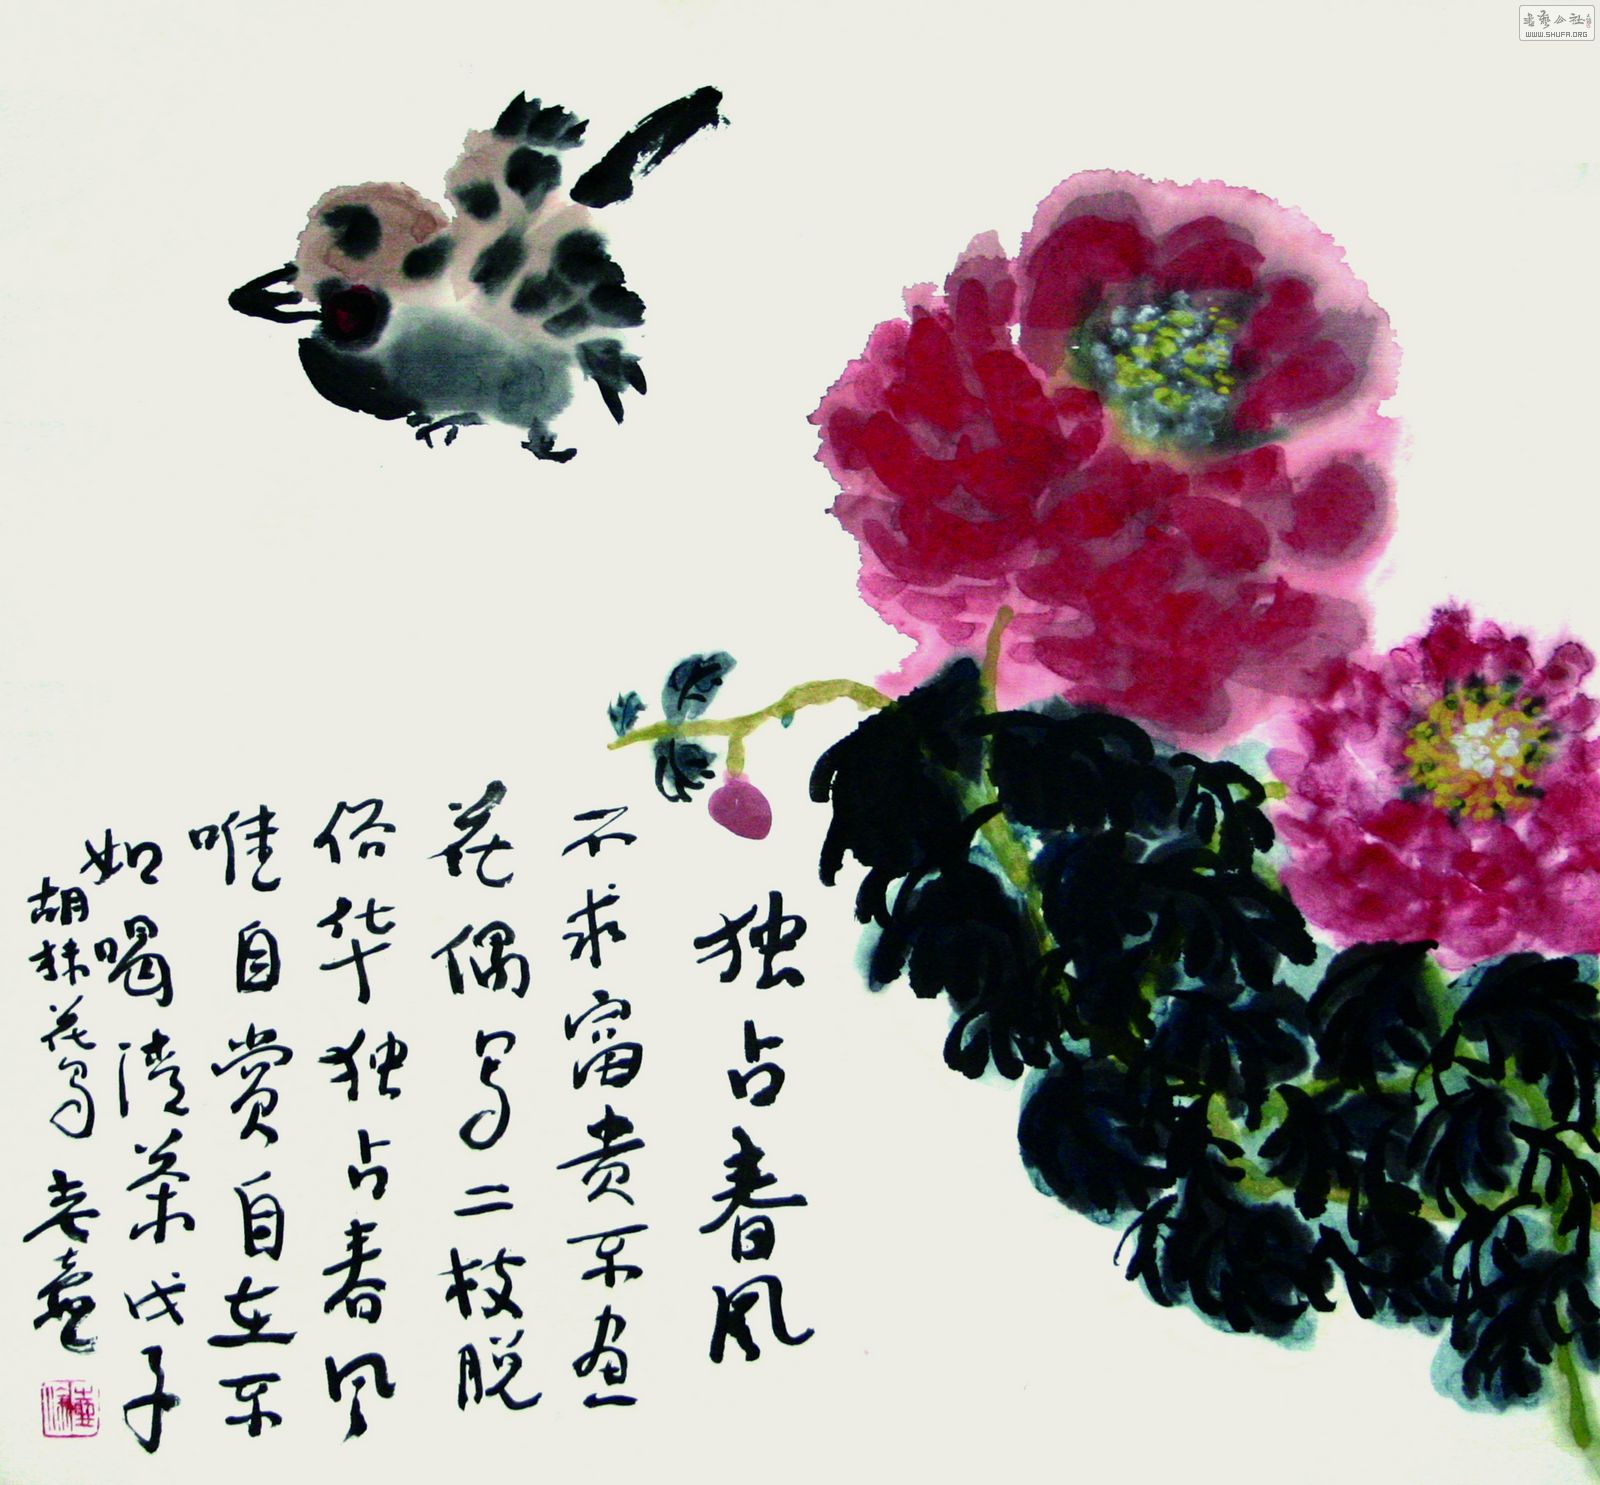 独占春风
不求富贵不画
花偶写二枝脱
俗华独占春风
唯自赏自在不
如喝清茶戊子
胡抹花鸟老壶
WWW.SHUFA.ORG